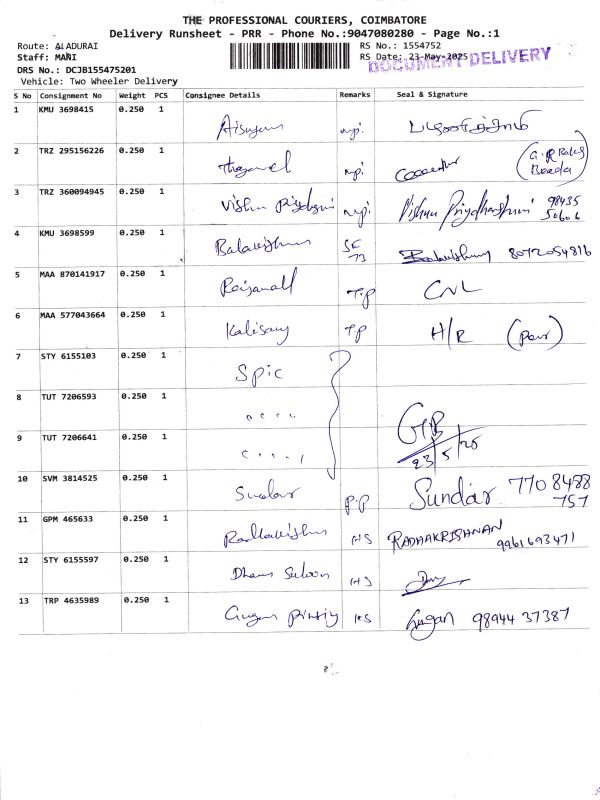 THE PROFESSIONAL COURIERS, COIMBATORE
Delivery Runsheet - PRR - Phone No.:9047080280 - Page No.:1
Route: ALADURAI RS No.: 1554752
Staff: MANI RS Date: 23-May-2025
DOCUMENT DELIVERY
DRS No.: DCJB155475201
Vehicle: Two Wheeler Delivery
S No Consignment No Weight PCS Consignee Details Remarks Seal & Signature
1 KMU 3698415 0.250 1
2 TRZ 295156226 0.250 1
3 TRZ 360094945 0.250 1 Vishnu Priyadharshini 98435
50606
4 KMU 3698599 0.250 1 Balakrishnan SE 8072054816
73
5 MAA 870141917 0.250 1 T.P CNL
6 MAA 577043664 0.250 1 Kalisamy T.P H/R
7 STY 6155103 0.250 1 Spic
8 TUT 7206593 0.250 1 ,, ,,
9 TUT 7206641 0.250 1 ,, ,, 23/5/25
10 SVM 3814525 0.250 1 Sundar P.P Sundar 7708488
757
11 GPM 465633 0.250 1 Radhakrishnan HS RADHAKRISHNAN
9961693471
12 STY 6155597 0.250 1 HS
13 TRP 4635989 0.250 1 Gugan HS Gugan 98944 37387